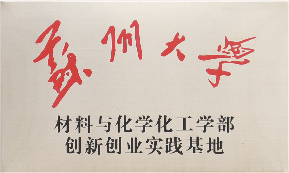 蘇州大學
材料与化学化工学部
创新创业实践基地